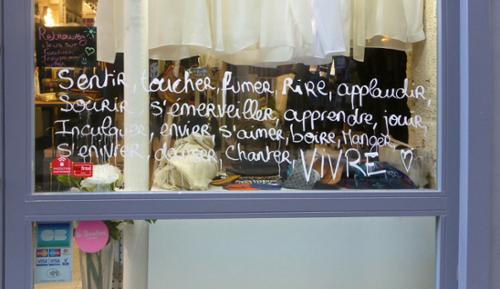 Retrouvez
Sentir, toucher, fumer, Rire, applaudir,
Sourir, s'émerveiller, apprendre, jouir,
Inculquer, envier, s'aimer, boire, Manger,
S'enivrer, danser, chanter, VIVRE ♡
CB
VISA